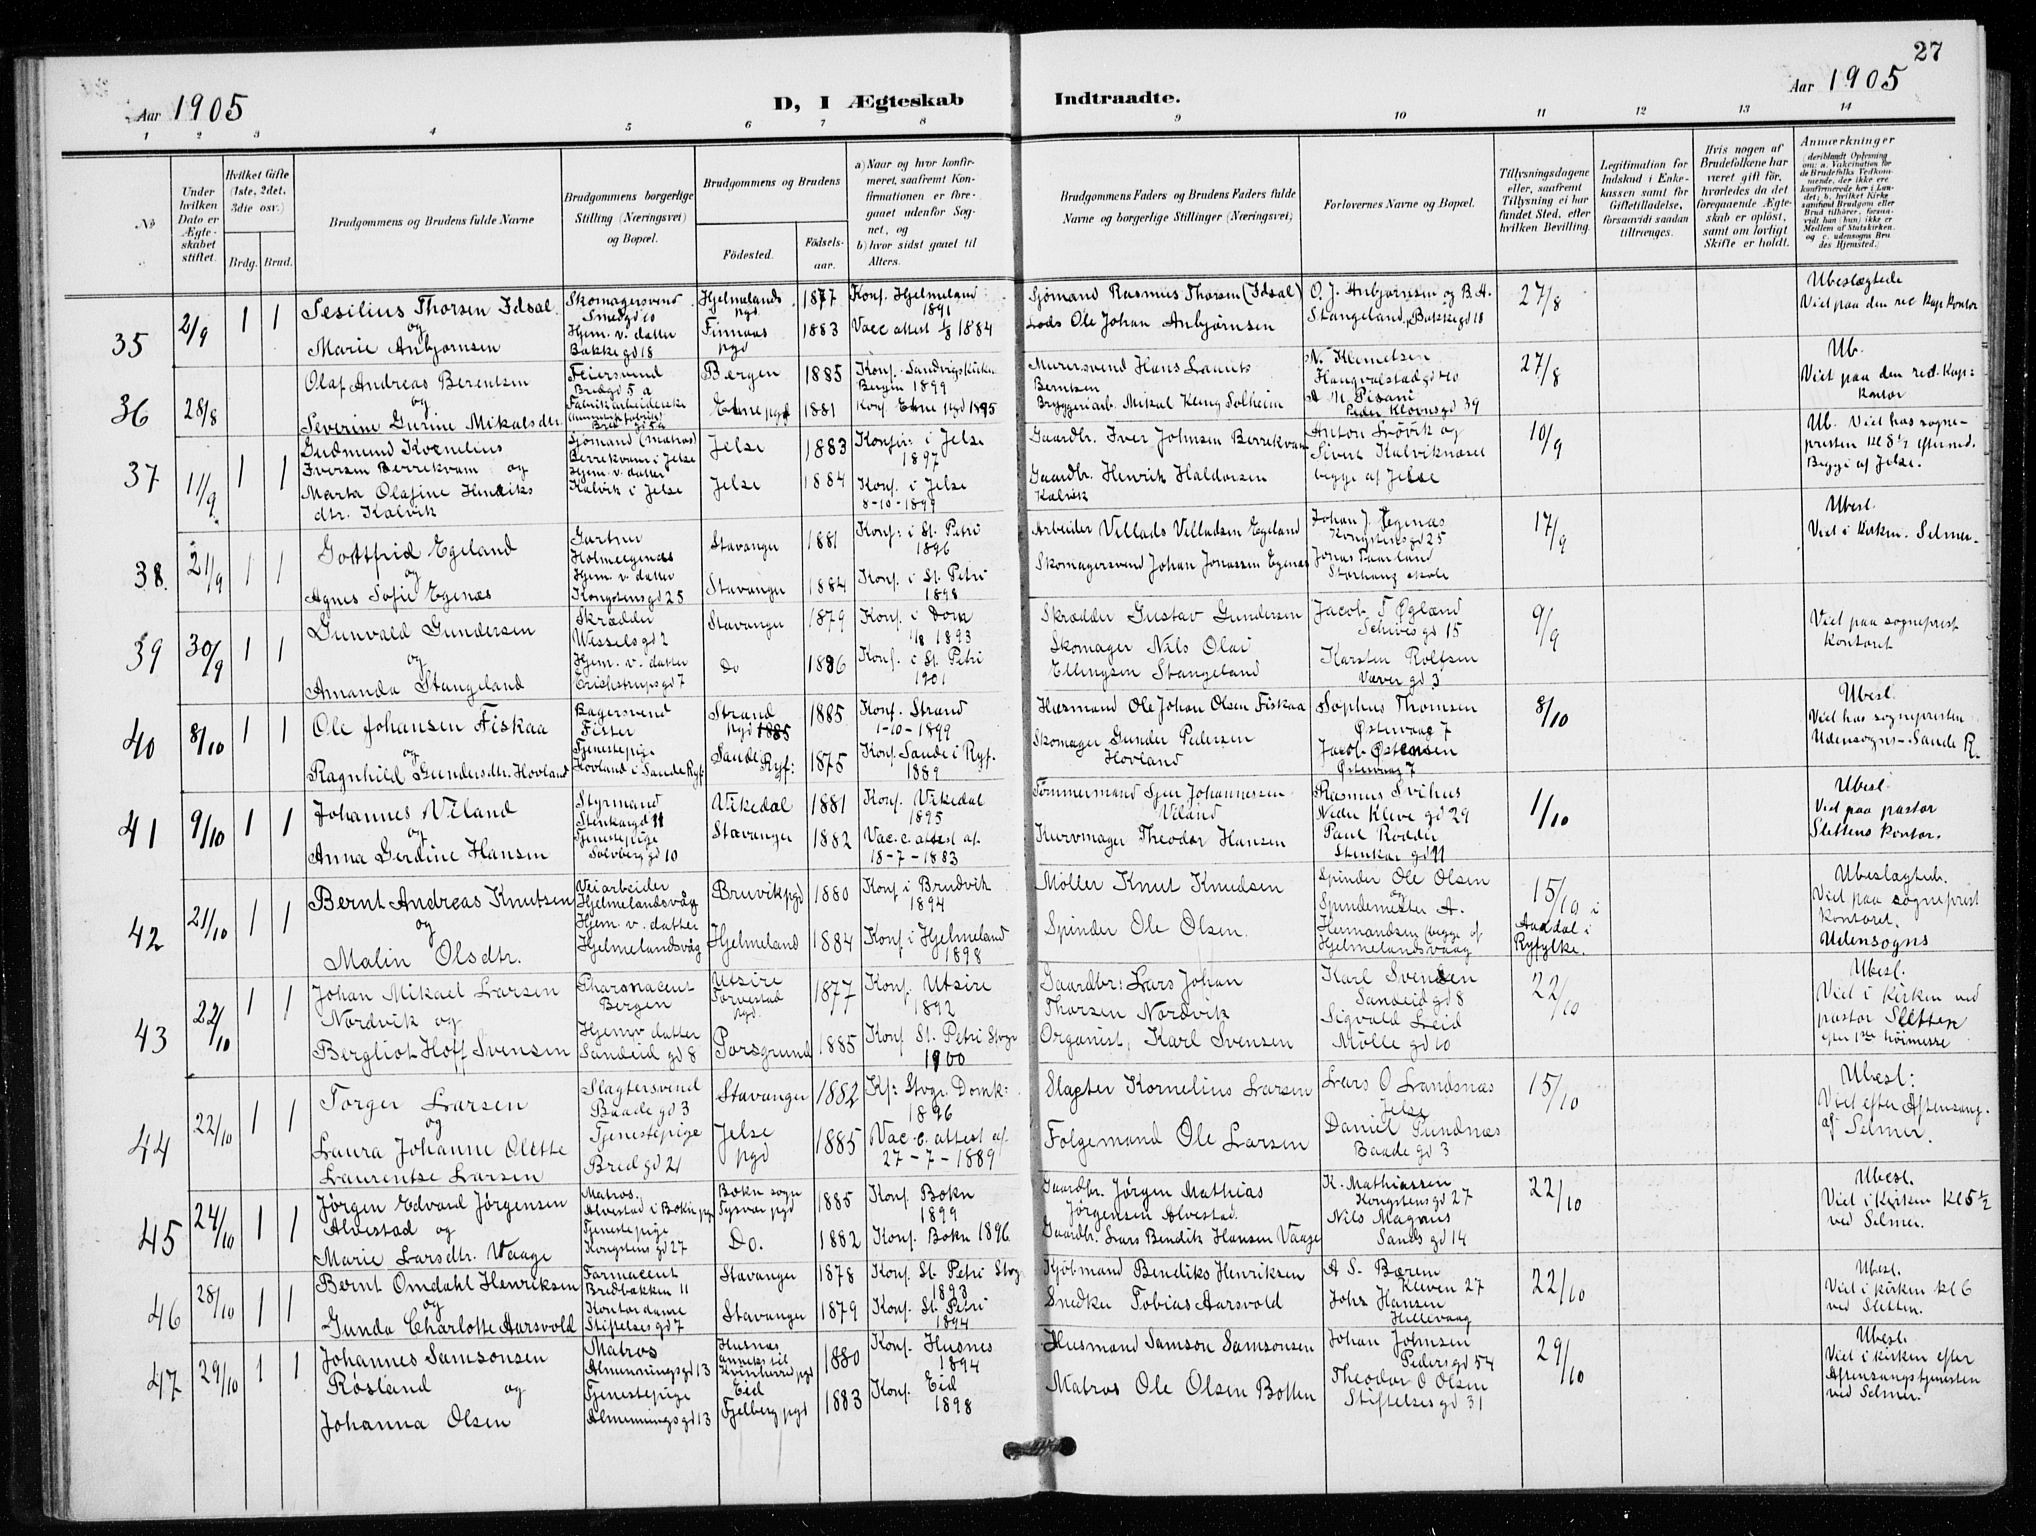 27
Aar 1905
D, I Ægteskab Indtraadte.
Aar 1905
1 2 3 4 5 6 7 8 9 10 11 12 13 14
No
Under hvilken Dato er Ægteskabet stiftet.
Hvilket Gifte (1ste, 2det, 3die osv.)
Brdg. Brud.
Brudgommens og Brudens fulde Navne
Brudgommens borgerlige Stilling (Næringsvei) og Bopæl.
Brudgommens og Brudens
Födested. Födselsaar.
a) Naar og hvor konfirmeret, saafremt Konfirmationen er foregaaet udenfor Sognet, og
b) hvor sidst gaaet til Alters.
Brudgommens Faders og Brudens Faders fulde Navne og borgerlige Stillinger (Næringsvei)
Forlovernes Navne og Bopæl.
Tillysningsdagene eller, saafremt Tillysning ei har fundet Sted, efter hvilken Bevilling.
Legitimation for Indskud i Enkekassen samt for Giftetilladelse, forsaavidt saadan tiltrænges.
Hvis nogen af Brudefolkene har været gift för, hvorledes da det foregaaende Ægteskab er oplöst, samt om lovligt Skifte er holdt.
Anmærkninger
deriblandt Oplysning om: a. Vakcination for de Brudefolks Vedkommende, der ikke ere konfirmerede her i Landet; b. hvilket Kirkesamfund Brudgom eller Brud tilhörer, forsaavidt han (hun) ikke er Medlem af Statskirken, og c. udensogns Brudes Hjemsted.)
35 2/9 1 1
Sesilius Thorsen Idsal
og
Marie Anbjørnsen
Skomagersvend
Smedgd 10
Hjem. v. datter
Bakkegd 18
Hjelmelands pgd. 1877
Finnaas pgd 1883
Konf. Hjelmeland 1891
Vacc attest 1/8 1884
Sjømand Rasmus Thorsen (Idsal)
Lods Ole Johan Anbjørnsen
O. J. Anbjørnsen og B. A.
Stangeland, Bakkegd 18
27/8
Ubeslægtede
Viet paa den res kap kontor
36 28/8
Olaf Andreas Berentsen
og
Severine Gurine Mikalsdtr.
Feiersvend
Bredgd 5 a
Fabrikarbeiderske
Bergen 1885
Etne pgd 1881
Konf. Sandvigskirken
Bergen 1899
Konf Etne pgd 1895
Murersvend Hans Laurits
Berntsen
Bryggeriarb. Mikal Kleng Solheim
N. Klemetsen
Haugvalstadgd 40
A N Pisani
Peder Klowsgd 39
27/8
Ub.
Viet paa den red. Kap: kontor
37 11/9 1 1
Gudmund Kornelius
Iversen Berrekvam og
Marta Olafine Henriks
dtr. Kalvik
Sjømand (matros)
Berrekvam i Jelse
Hjem. v. datter
Kalvik i Jelse
Jelse 1883
Jelse 1884
Konfir: i Jelse
1897
Konf. i Jelse
8-10-1899
Gaardbr. Iver Johnsen Berrekvam
Gaardbr. Henrik Haldorsen
Kalvik
Anton Løvik og
Sivert Kalviknæset
begge af Jelse
10/9
Ub. Viet hos sogne-
presten kl 8 1/2 efterm.
Begge af Jelse.
38. 21/9 1 1
Gottfrid Egeland
og
Agnes Sofie Egenæs
Gartner
Holmeegenæs
Hjem. v. datter
Kongstensgd 25
Stavanger 1881
Stavanger 1884
Konf. i St. Petri
1896
Konf. i St. Petri
1898
Arbeider Villads Villadsen Egeland
Skomagersvend Johan Jonassen Egenæs
Johan J. Egenæs
Kongstensgd 25
Jonas Paarland
Storhaug skole
17/9
Ubesl.
Viet i kirken. Selmer.
39 30/9 1 1
Gunvald Gundersen
og
Amanda Stangeland
Skrædder
Wesselsgd 2
Hjem. v. datter
Erichstrupsgd 7
Stavanger 1879
Do 1886
Konf. i Dom
1/8 1893
Konf. i St. Petri
1901
Skrædder Gustav Gundersen
Skomager Nils Olai
Ellingsen Stangeland
Jacob T Øgland
Schivesgd 15
Karsten Rolfsen
Væver gd 3
9/9
Viet paa sogneprest
kontoret
40 8/10 1 1
Ole Johansen Fiskaa
og
Ragnhild Gundersdtr. Hovland
Bagersvend
Fister
Tjenestepige
Hovland i Sande Ryf.
Strand pgd 1885
1885
Sande Ryf: 1875
Konf. Strand
1-10-1899
Konf. Sande i Ryf.
1889
Husmand Ole Johan Olsen Fiskaa
Skomager Gunder Pedersen
Hovland
Sophus Thomsen
Østervaag 7
Jacob Østensen
Østervaag 7
8/10
Ubesl.
Viet hos sognepresten
Udensogns - Sande R.
41 9/10 1 1
Johannes Viland
og
Anna Gerdine Hansen
Styrmand
Stenkargd 11
Tjenestepige
Solvberggd 10
Vikedal 1881
Stavanger 1882
Konf. Vikedal
1895
Vac. c. attest af.
18-7-1883
Tømmermand Sjur Johannessen
Viland
Kurvmager Theodor Hansen
Rasmus Svihus
Nedre Kleve gd 29
Paul Rodder
Stenkar gd 11
1/10
Ubesl.
Viet paa pastor
Slettens kontor.
42 21/10 1 1
Bernt Andreas Knutsen
og
Malin Olsdtr.
Veiarbeider
Hjelmelandsvåg
Hjem v. datter
Hjelmelandsvåg
Bruvik pgd 1880
Hjelmeland 1884
Konf i Brudvik
1894
Konf i Hjelmeland
1898
Møller Knut Knudsen
Spinder Ole Olsen.
Spinder Ole Olsen
og
Spindemester A.
Hermandsen begge af
Hjelmelandsvaag
15/10 i
Aardal i
Ryfylke.
Ubeslægtede.
Viet paa sogneprest
kontoret.
Udensogns
43 22/10 1 1
Johan Mikael Larsen
Nordvik og
Bergliot Hoff Svensen
Pharmaceut
Bergen
Hjemv datter
Sandeid gd 8
Utsire
Torvestad pgd. 1877
Porsgrund 1885
Konf. Utsire
1892
Konf St. Petri Stvgr
1900
Gaardbr: Lars Johan
Thorsen Nordvik
Organist, Karl Svensen
Karl Svensen
Sandeid gd 8
Sigvald Leid
Mølle gd 10
22/10
Ubesl.
Viet i kirken ved
pastor Sletten
efter 1ste høimesse
44 22/10 1 1
Torger Larsen
og
Laura Johanne Olette
Laurentse Larsen
Slagtersvend
Baade gd 3
Tjenestepige
Bred gd 21
Stavanger 1882
Jelse pgd 1885
Kf: Stvgr. Domk:
1896
Vac. c. attest af.
27-7-1889
Slagter Kornelius Larsen
Folgemand Ole Larsen
Lars O Landsnæs
Jelse
Daniel Sundnæs
Baade gd 3
15/10
Ubesl:
Viet efter Aftensang.
af Selmer.
45 24/10 1 1
Jørgen Edvard Jørgensen
Alvestad og
Marie Larsdtr. Vaage
Matros.
Alvestad i Bokn pgd
Tjenestepige
Kongstens gd 27
Bokn sogn
Tysvær pgd 1885
Do. 1882
Konf. Bokn
1899
Konf. Bokn 1896
Gaardbr. Jørgen Mathias
Jørgensen Alvestad.
Gaardbr. Lars Bendik Hansen Vaage
K. Mathiassen
Kongstensgd 27
Nils Magnus
Sands gd 14
22/10
Ubesl.
Viet i kirken kl 5 1/2
ved Selmer.
46 28/10 1 1
Bernt Omdahl Henriksen
og
Gunda Charlotte Aarsvold
Farmaceut
Bredbakken 11
Kontordame
Stiftelsesgd 7
Stavanger 1878
Stavanger 1879
Konf. St. Petri Stvg
1893
Konf. St. Petri
1894
Kjøbmand Bendiks Henriksen
Snedker Tobias Aarsvold
A S. Bærem
Kleven 27
Johs Hansen
Hillevaag
22/10
Ubesl.
Viet i kirken kl 6
ved Sletten.
47 29/10 1 1
Johannes Samsonsen
Røsland og
Johanna Olsen
Matros
Almenningsgd 13
Tjenestepige
Almenningsgd 13
Husnæs
anneks til
Kvinherred pgd 1880
Eid
Fjelberg pgd 1883
Konf. Husnes
1894
Konf. Eid
1898
Husmand Samson Samsonsen
Matros Ole Olsen Botten
Johan Johnsen
Pedersgd 54
Theodor O Olsen
Stiftelsesgd 31
29/10
Ubesl.
Viet i kirken efter
Aftensangstjenesten
ved Selmer.